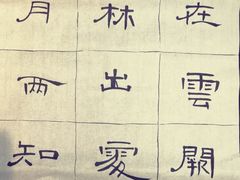 在雲闕
林出處
月两知